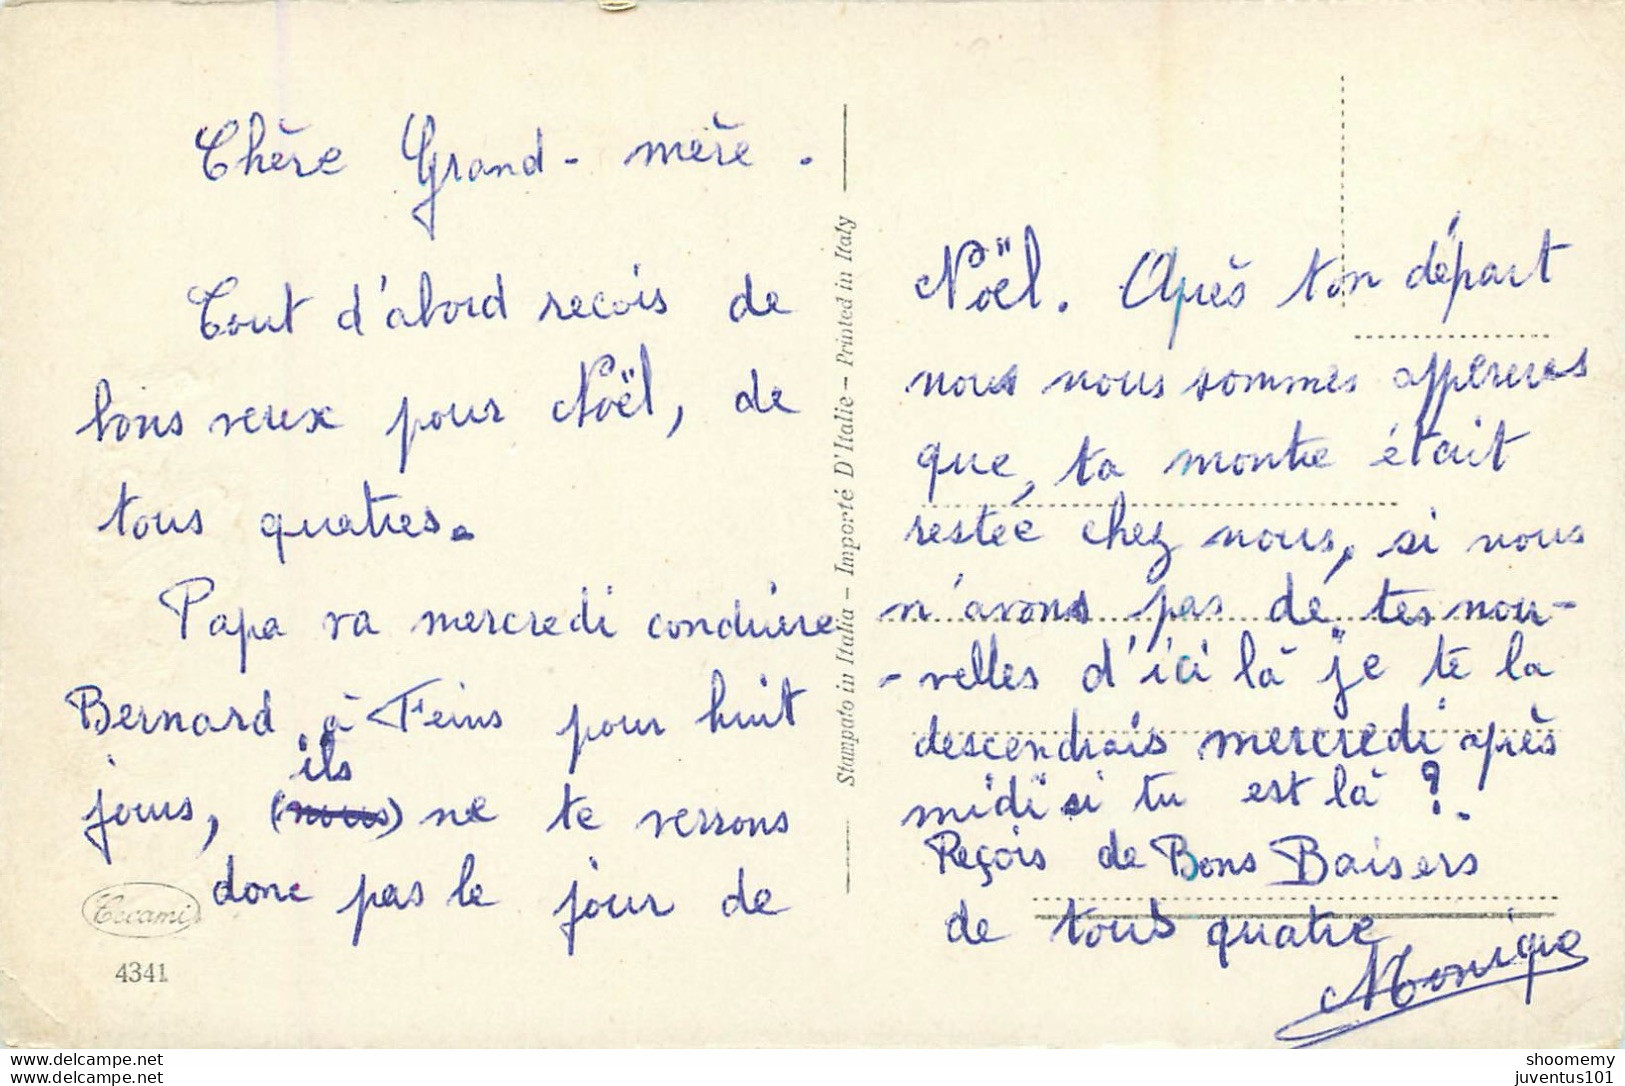 Chère Grand-mère.
Tout d'abord recois de
bons veux pour Noël, de
tous quatres.
Papa va mercredi conduire
Bernard à Feins pour huit
ils
jours, (nous) ne te verrons
donc pas le jour de
Cecami
4341
Stampato in Italia - Importé D'Italie - Printed in Italy
Noël. Après ton départ
nous nous sommes apperçues
que, ta montre était
restée chez nous, si nous
n'avons pas de tes nou-
-velles d'ici là je te la
descendrais mercredi après
midi si tu est là ?.
Reçois de Bons Baisers
de tous quatre
Monique
www.delcampe.net
www.delcampe.net
shoomemy
juventus101